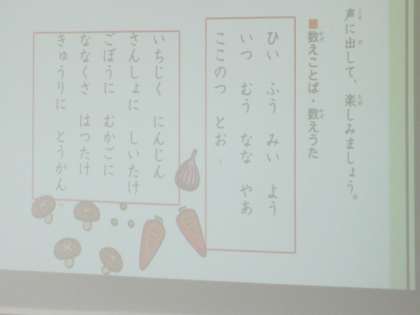 声に出して、楽しみましょう。
■数えことば・数えうた
ひい ふう みい よう
いつ むう なな やあ
ここのつ とお
いちじく にんじん
さんしょに しいたけ
ごぼうに むかごに
ななくさ はつたけ
きゅうりに とうがん